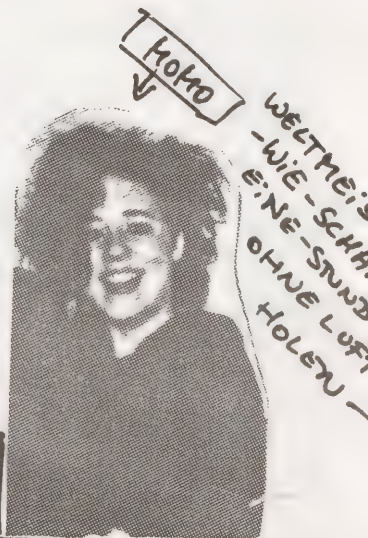 MOMO
WELTMEIS
-WIE-SCHAF
EINE-STUND
OHNE LUFT
HOLEN-